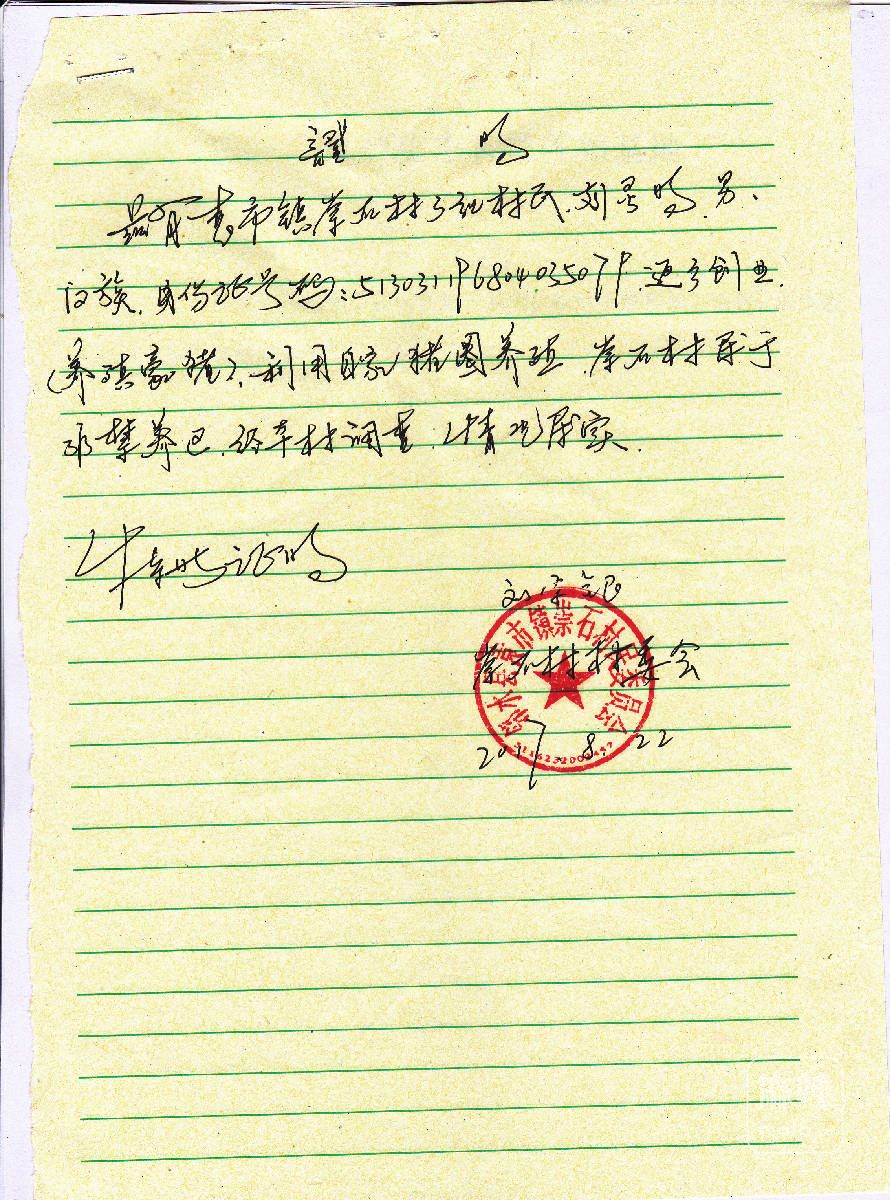 證 明
兹有袁市镇崇石村3社村民,刘昌明,男、
汉族,身份证号码:513031196804035079,返乡创业,
(养殖豪猪),利用自家猪圈养殖,崇石村属于
非禁养区,经本村调查,情况属实.
特此证明
崇石村村委会
邻水县袁市镇崇石村村民委员会
2017.8.22